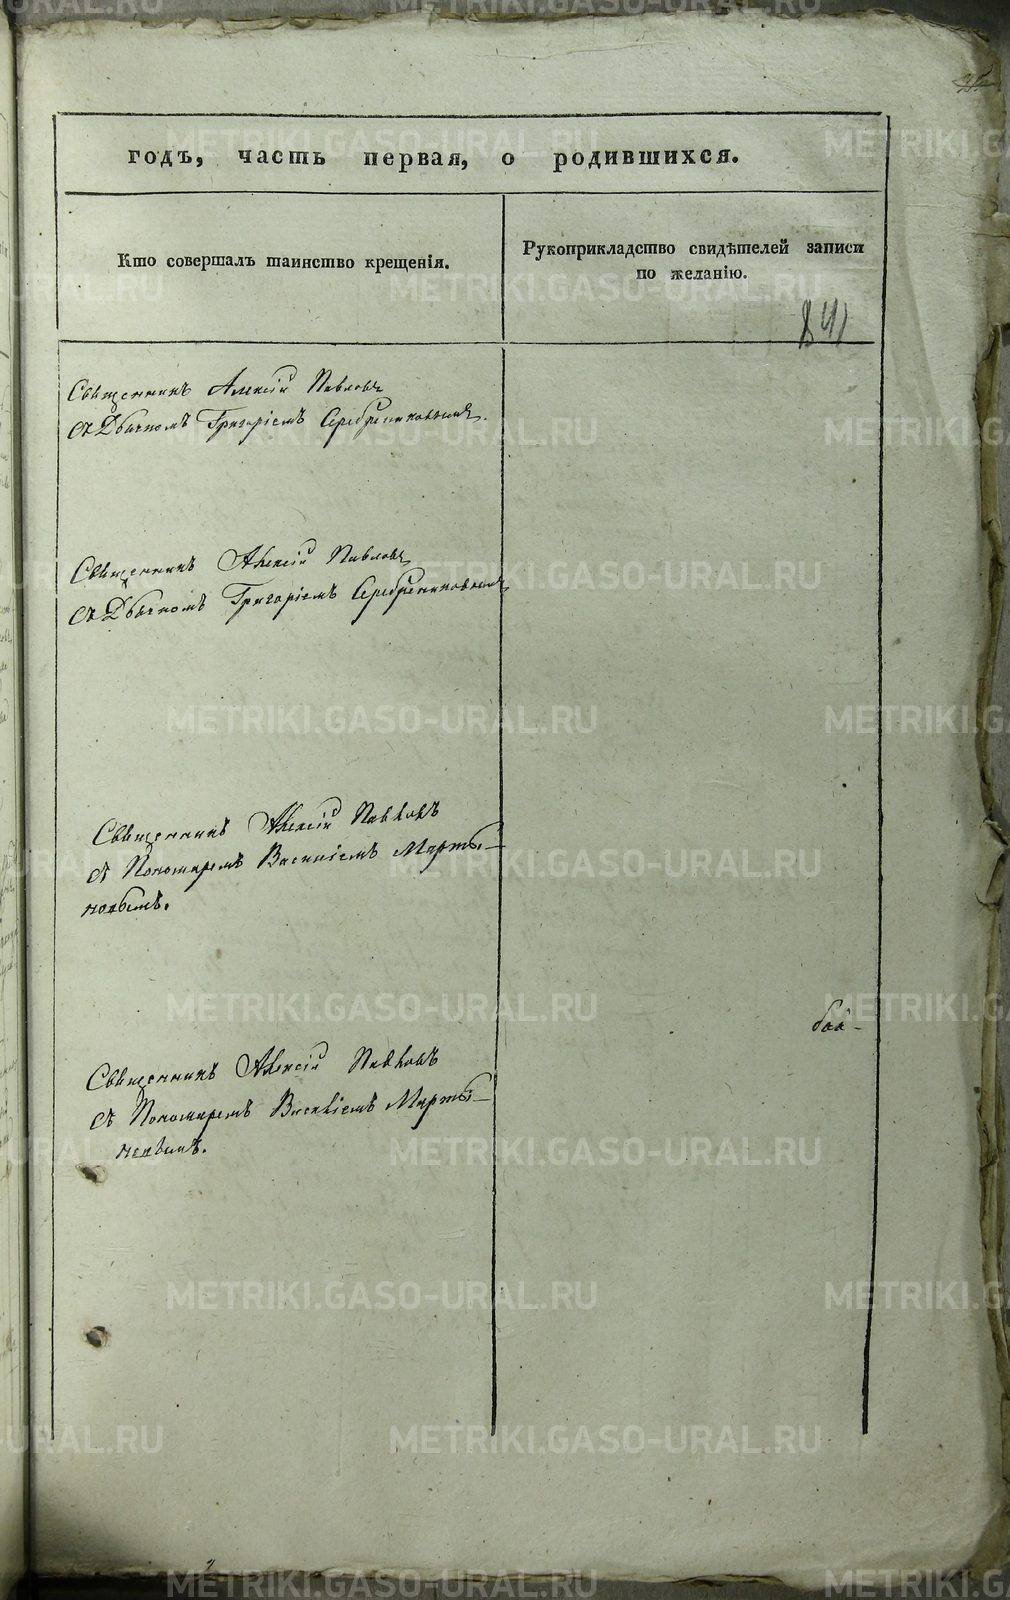 годъ, часть первая, о родившихся.
Кто совершалъ таинство крещенія.
Рукоприкладство свидѣтелей записи
по желанію.
841
Священникъ Алексій Павловъ
съ Дьячкомъ Григоріемъ Серебрениковымъ.
Священникъ Алексій Павловъ
съ Дьячкомъ Григоріемъ Серебрениковымъ
Священникъ Алексій Павловъ
съ Пономаремъ Василіемъ Марты-
новымъ.
Священникъ Алексій Павловъ
съ Пономаремъ Василіемъ Марты-
новымъ.
METRIKI.GASO-URAL.RU